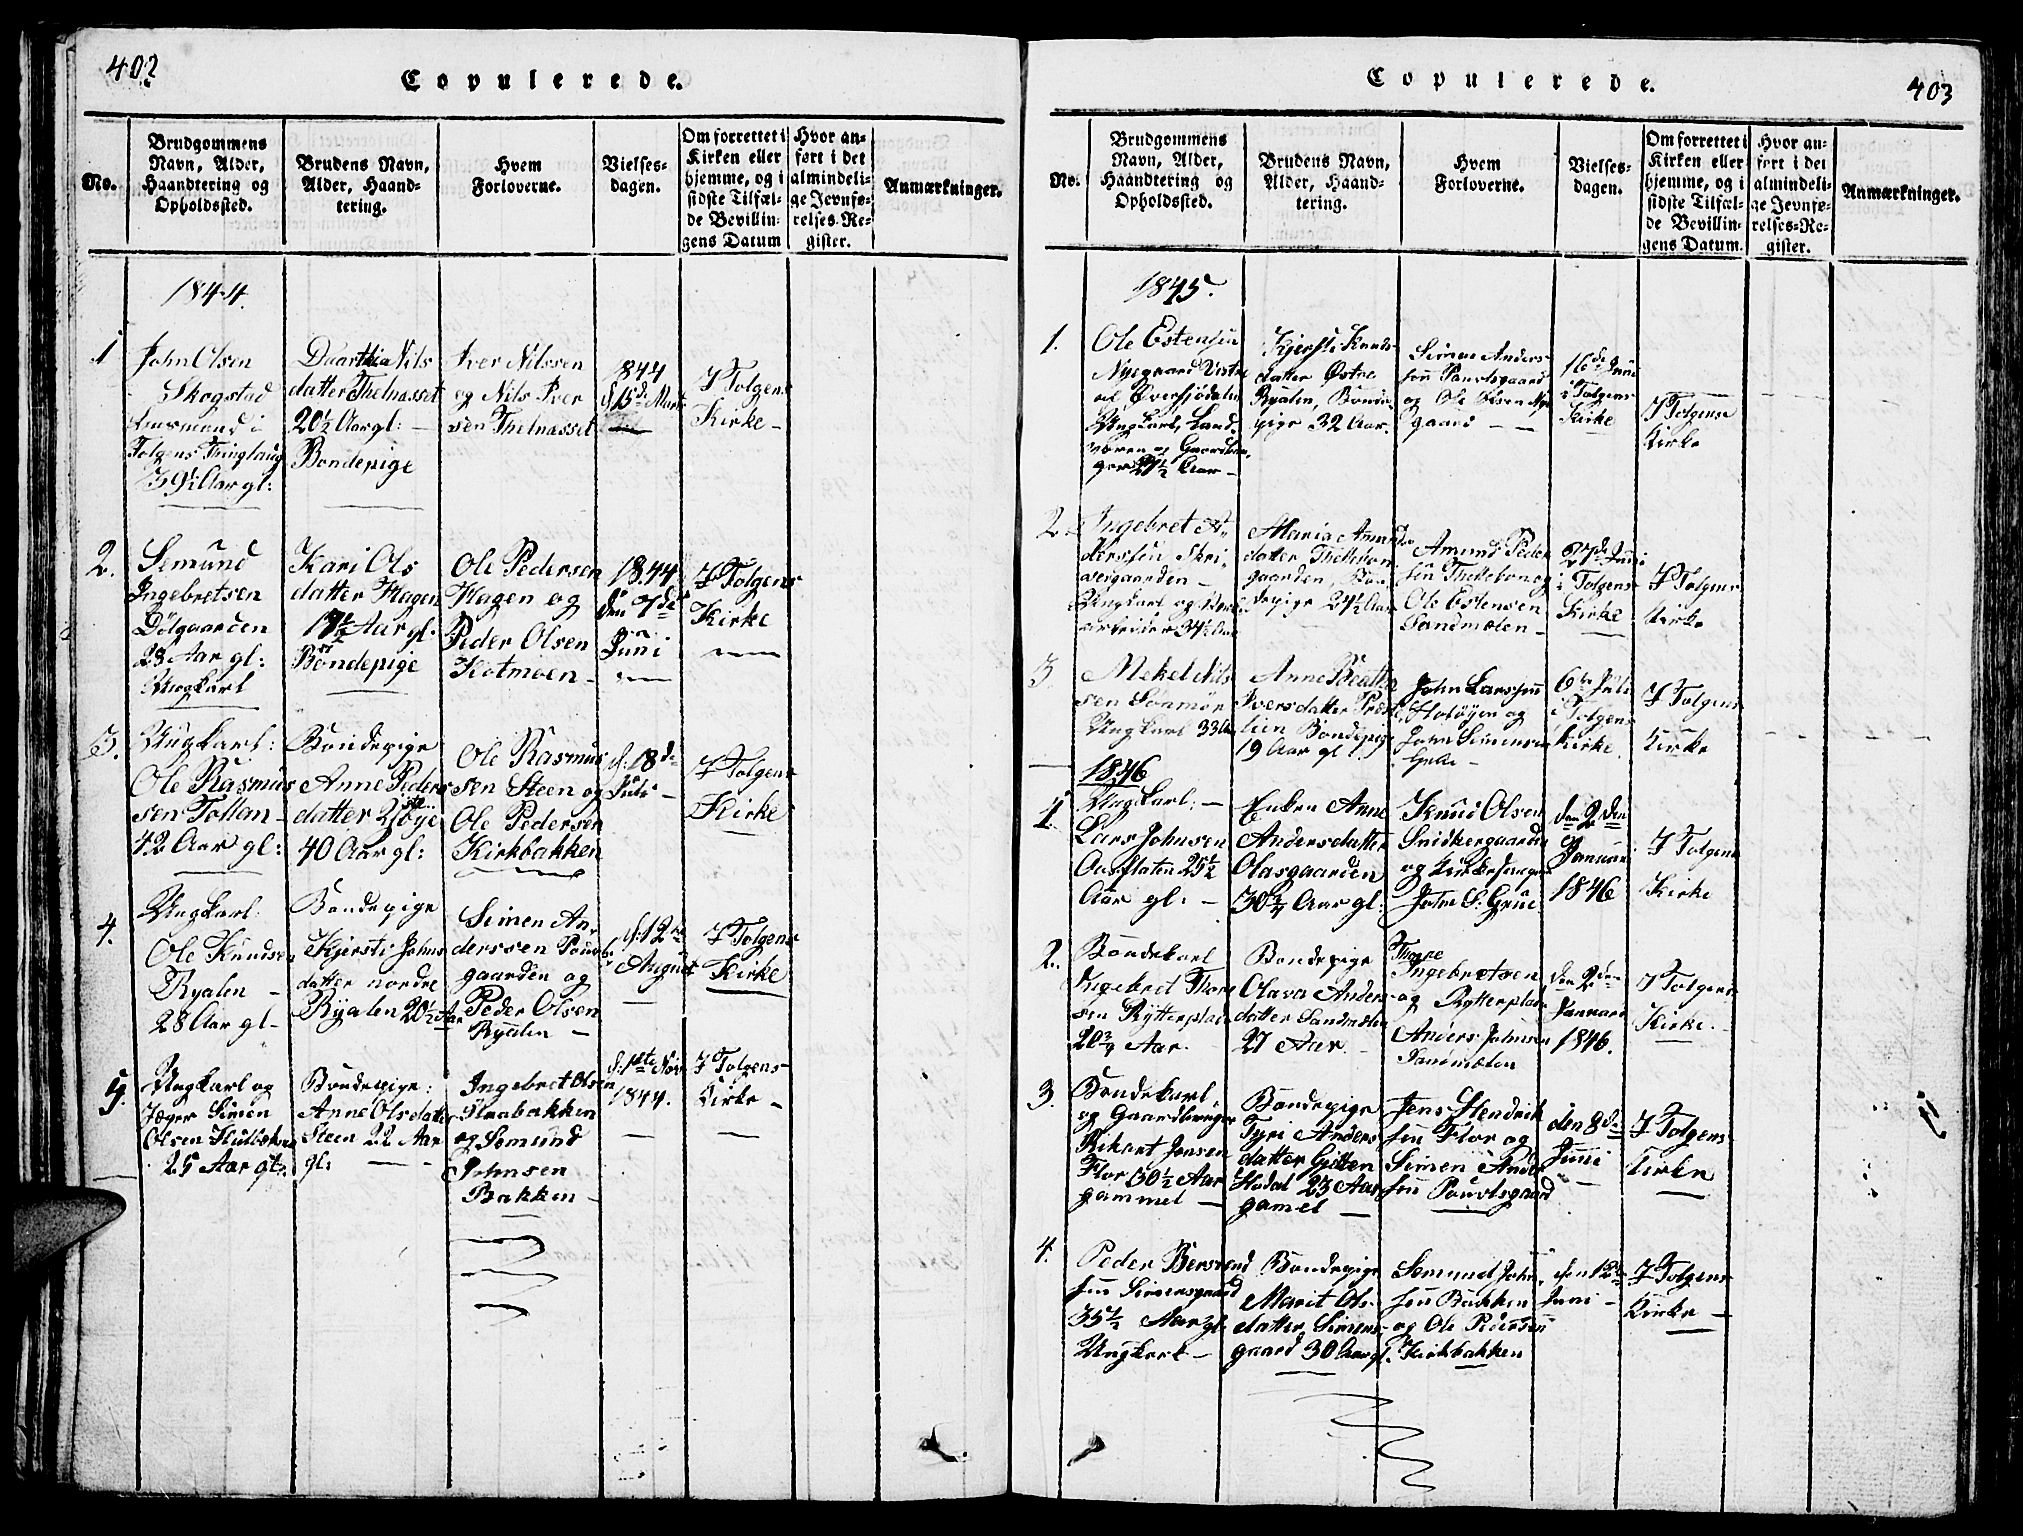 402
Copulerede.
No.
Brudgommens
Navn, Alder,
Haandtering og
Opholdssted.
Brudens Navn,
Alder, Haand-
tering.
Hvem
Forloverne.
Vielses-
dagen.
Om forrettet i
Kirken eller
hjemme, og i
sidste Tilfæl-
de Bevillin-
gens Datum
Hvor an-
ført i det
almindeli-
ge Jevnfø-
relses-Re-
gister.
Anmærkninger.
1844.
1
John Olsen
Skogstad
Tolgens Tinglaug
39½ Aar gl:
Daarthia Nils
datter Thelnasset
20½ Aar gl: –
Bondepige
Iver Nilssen
og Nils Iver
sen Thelnasset
1844
d. 15de Marts
I Tolgens
Kirke –
2.
Semund
Ingebretsen
Dølgaarden
23 Aar gl:
Ungkarl
Kari Ols
datter Hagen
19½ Aar gl:
Bondepige
Ole Pedersen
Hagen og
Peder Olsen
Kotmoen –
1844
den 7de
Juni
I Tolgens
Kirke
3.
Ungkarl:
Ole Rasmus
sen Tollan –
42 Aar gl:
Bondepige
Anne Peders
datter
40 Aar gl:
Ole Rasmus
sen Steen og
Ole Pedersen
Kirkbakken
d. 18de
Juli –
I Tolgens
Kirke
4.
Ungkarl:
Ole Knudsen
Ryalen –
28 Aar gl –
Bondepige
Kjersti Johns
datter nordre
Ryalen 20½ Aar
Simen An-
derssen Pouls
gaarden og
Peder Olsen
Ryalen –
d. 12te
August
I Tolgens
Kirke
5.
Ungkarl og
Jæger Simen
Olsen
25 Aar gl.
Bondepige:
Anne Olsdatter
Steen 22 Aar
gl:
Ingebret Olsen
og Semund
Johnsen
Bakken –
d. 1ste Nov
1844.
I Tolgens
Kirke –
403
Copulerede.
No.
Brudgommens
Navn, Alder,
Haandtering og
Opholdssted.
Brudens Navn,
Alder, Haand-
tering.
Hvem
Forloverne.
Vielses-
dagen.
Om forrettet i
Kirken eller
hjemme, og i
sidste Tilfæl-
de Bevillin-
gens Datum.
Hvor an-
ført i det
almindeli-
ge Jevnfø-
relses-Re-
gister.
Anmærkninger.
1845.
1.
Ole Estensen
Nyegaard Vestre
al Øversjødalen
Ungkarl, Land
Aar –
Kjersti Knuds
datter Østre
Ryalen, Bonde
pige 32 Aar.
Simen Anders
sen Poulsgaard
og Ole Olsen Nye
gaard – –
16de Juni
i Tolgens
Kirke
I Tolgens
Kirke
2.
Ingebret An
derssen Skri
vergaarden –
Ungkarl og
arbeider 34½ Aar
Maria Amunds
datter Thellebon
gaarden, Bon
depige 24½ Aar
Amund Peder
sen Thellebon og
Ole Estensen
Sandmælen –
27de Juni
i Tolgens
Kirke
I Tolgens
Kirke
3.
Mekel Nils
sen
Ungkarl 33 Aar
Anne Beathe
Iversdatter
lien Bondepige
19 Aar gl
John Larssen
Holøyen og
John Simensen
6te Juli
i Tolgens
Kirke
I Tolgens
Kirke
1846
1.
Ungkarl: –
Lars Johnsen
Ousflaten 25½
Aar gl: –
Enken Anne
Andersdatter
Olasgaarden
30¾ Aar gl:
Knud Olsen
Snidkergaarden
og Kirkesanger
John S. Grue
den 2den
Januar
1846
I Tolgens
Kirke
2.
Bondekarl
Ingebret Thore
sen Rytterplads
20¾ Aar.
Bondepige
Olava Anders
datter Sandmælen
27 Aar –
Thore
Ingebretsen
og Rytterplads
Anders Johnsen
Sandmælen
den 2den
Januari
1846.
I Tolgens
Kirke.
3.
Bondekarl
og Gaardbruger
Rikart Jensen
Flor 30½ Aar
gammel –
Bondepige
Tyri Anders
datter Gjetten
Hodal 23 Aar
gamel –
Jens Hendrik
sen Flor og
Simen Ander
sen Poulsgaard
den 8de
Juni
I Tolgens
Kirke
4.
Peder Bersvend
sen Simensgaard
35½ Aar gl.
Ungkarl –
Bondepige
Marit Ols
datter Simens
gaard 30 Aar gl.
Semund John
sen Bakken
og Ole Pedersen
Kirkbakken
den 12te
Juni –
I Tolgens
Kirke –